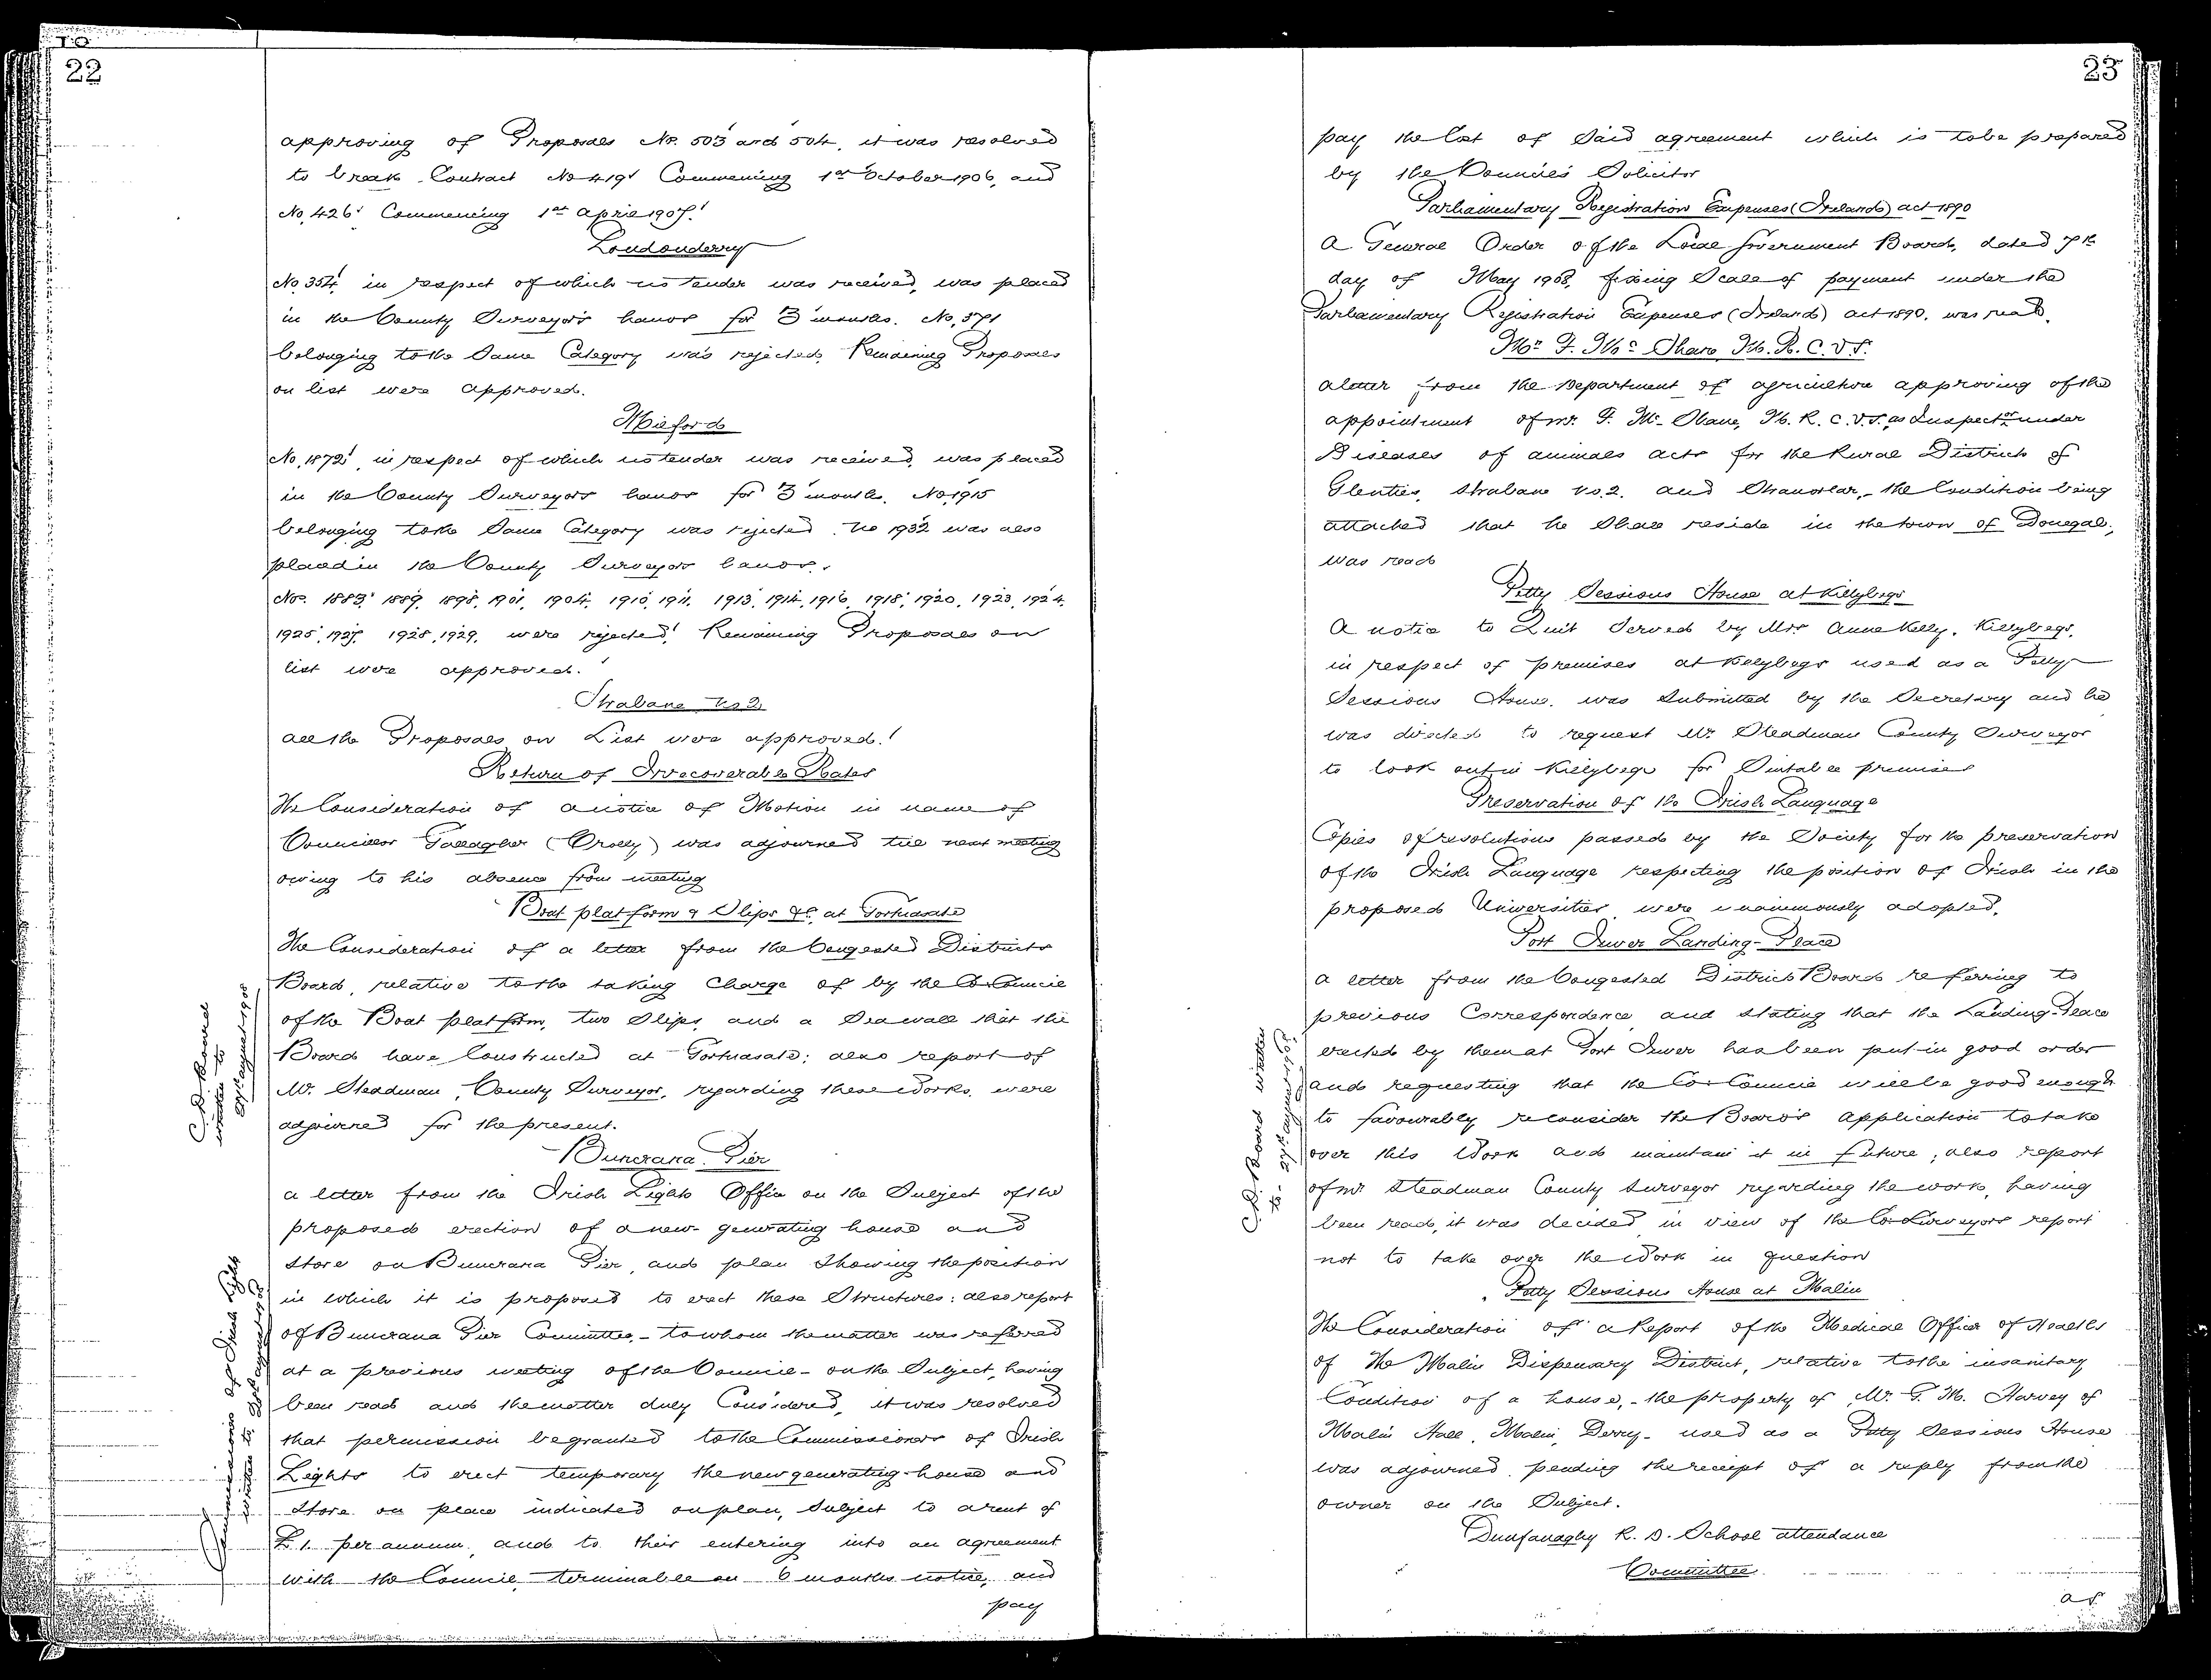 22
approving of Proposals No. 503 and 504, it was resolved
to break Contract No 419 Commencing 1st October 1906, and
No. 426 Commencing 1st April 1907.
Londonderry
No 354, in respect of which no tender was received, was placed
in the County Surveyor's hands for 3 months. No. 371
belonging to the Same Category was rejected. Remaining Proposals
on list were approved.
Milford
No. 1872, in respect of which no tender was received, was placed
in the County Surveyors hands for 3 months. No. 1915
belonging to the Same Category was rejected. No 1932 was also
placed in the County Surveyors hands.
Nos. 1883, 1889, 1898, 1901, 1904, 1910, 1911, 1913, 1914, 1916, 1918, 1920, 1923, 1924,
1925, 1927, 1928, 1929, were rejected. Remaining Proposals on
list were approved.
Strabane No 2
All the Proposals on List were approved.
Return of Irrecoverable Rates
The Consideration of a notice of Motion in name of
Councillor Gallagher (Crolly) was adjourned till next meeting
owing to his absence from meeting
Boat platform & Slips &c. at Gortnasate
The Consideration of a letter from the Congested Districts
Board, relative to the taking Charge of by the Co. Council
of the Boat platform, two Slips, and a Seawall that the
Board have Constructed at Gortnasate; also report of
Mr. Steadman, County Surveyor, regarding these works, were
adjourned for the present.
C.D. Board
written to
27th August 1908
Buncrana Pier
a letter from the Irish Lights Office on the Subject of the
proposed erection of a new generating house and
Store on Buncrana Pier, and plan Showing the position
in which it is proposed to erect these Structures: also report
of Buncrana Pier Committee, - to whom the matter was referred
at a previous meeting of the Council - on the Subject, having
been read and the matter duly Considered, it was resolved
that permission be granted to the Commissioners of Irish
Lights to erect temporary the new generating-house and
Store on place indicated on plan, Subject to a rent of
£1. per annum, and to their entering into an agreement
with the Council, terminable on 6 months notice, and
pay
Commissioners of Irish Lights
written to
23
pay the Cost of Said agreement which is to be prepared
by the Council's Solicitor
Parliamentary Registration Expenses (Ireland) Act 1890
A General Order of the Local Government Board, dated 7th
day of May 1908, fixing Scale of payment under the
Parliamentary Registration Expenses (Ireland) Act 1890, was read.
Mr F. McShane M.R.C.V.S.
a letter from the Department of Agriculture approving of the
appointment of Mr. F. McShane, M.R.C.V.S. as Inspector under
Diseases of animals acts for the Rural Districts of
Glenties, Strabane No. 2. and Stranorlar, - the Condition being
attached that he Shall reside in the town of Donegal,
was read
Petty Sessions House at Killybegs
A notice to Quit Served by Mrs Anne Kelly, Killybegs,
in respect of premises at Killybegs used as a Petty
Sessions House, was Submitted by the Secretary and he
was directed to request Mr Steadman County Surveyor
to look out in Killybegs for Suitable premises
Preservation of the Irish Language
Copies of resolutions passed by the Society for the preservation
of the Irish Language respecting the position of Irish in the
proposed Universities were unanimously adopted.
Port Inver Landing-Place
a letter from the Congested Districts Board referring to
previous Correspondence and stating that the Landing-Place
erected by them at Port Inver has been put in good order
and requesting that the Co. Council will be good enough
to favourably reconsider the Board's application to take
over this work and maintain it in future; also report
of Mr Steadman County Surveyor regarding the work, having
been read, it was decided in view of the Co. Surveyors report
not to take over the work in question
C.D. Board written
to 27th August 1908
Petty Sessions House at Malin
The Consideration of a Report of the Medical Officer of Health
of the Malin Dispensary District, relative to the insanitary
Condition of a house, - the property of Mr. G. M. Harvey of
Malin Hall, Malin, Derry - used as a Petty Sessions House
was adjourned, pending the receipt of a reply from the
owner on the Subject.
Dunfanaghy R. D. School attendance
Committee